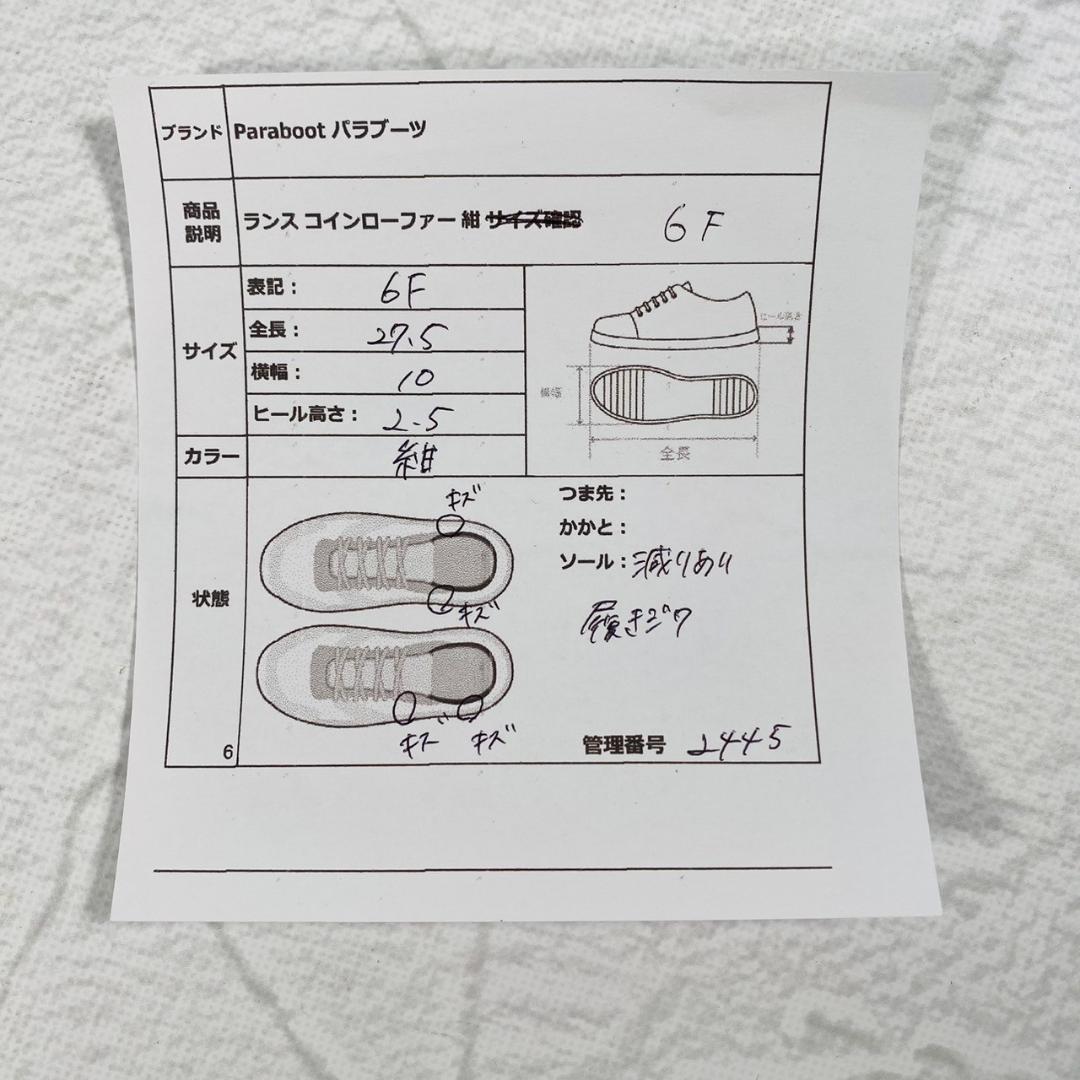 ブランド Paraboot パラブーツ
商品説明 ランス コインローファー 紺 サイズ確認 6F
サイズ
表記: 6F
全長: 27.5
横幅: 10
ヒール高さ: 2.5
ヒール高さ
横幅
全長
カラー 紺
状態
キズ
キズ
キズ キズ
つま先:
かかと:
ソール: 減りあり
履きジワ
6
管理番号 2445